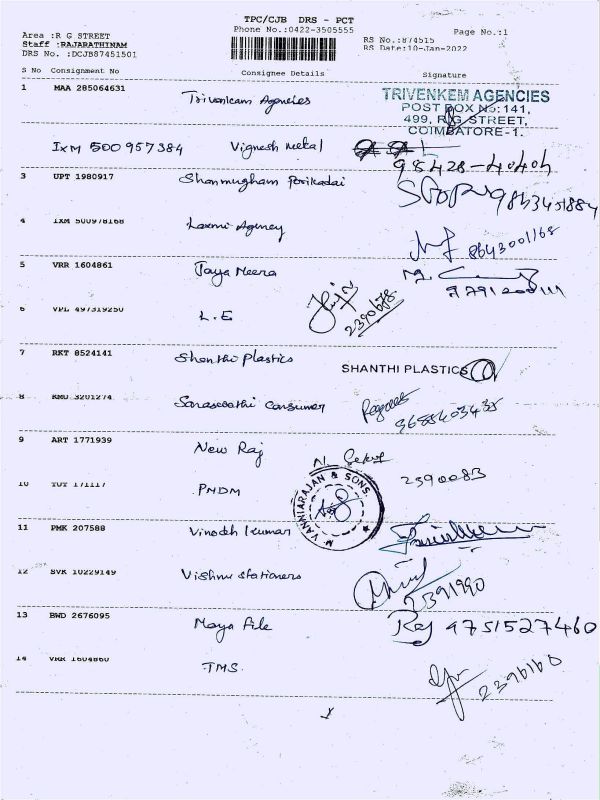 TPC/CJB DRS - PCT
Phone No.:0422-3505555
Area :R G STREET
Staff :RAJARATHINAM
DRS No. :DCJB87451501
RS No.:874515
Page No.:1
RS Date:10-Jan-2022
S No Consignment No Consignee Details Signature
1 MAA 285064631 Trivenkam Agencies
TRIVENKEM AGENCIES
POST BOX No:141,
499, R.G. STREET,
COIMBATORE-1.
IXM 500957384 Vignesh metal
98428-40404
3 UPT 1980917 Shanmugham Porikadai
9863451884
4 IXM 500978168 Laxmi Agency
8643001168
5 VRR 1604861 Jaya Meera
6 VPL 497319250 L.E
2390678
7 RKT 8524141 Shanthi Plastics SHANTHI PLASTICS
8 KMU 3201274 Saraswathi Consumer
9688403435
9 ART 1771939 New Raj
10 TUT 171117 PNDM 2590083
N. VANNIARAJAN & SONS.
11 PMK 207588 Vinoth kumar
12 SVK 10229149 Vishnu stationers
2391990
13 BWD 2676095 Maya file Raj 9751527460
14 VRR 1604860 TMS.
2396160